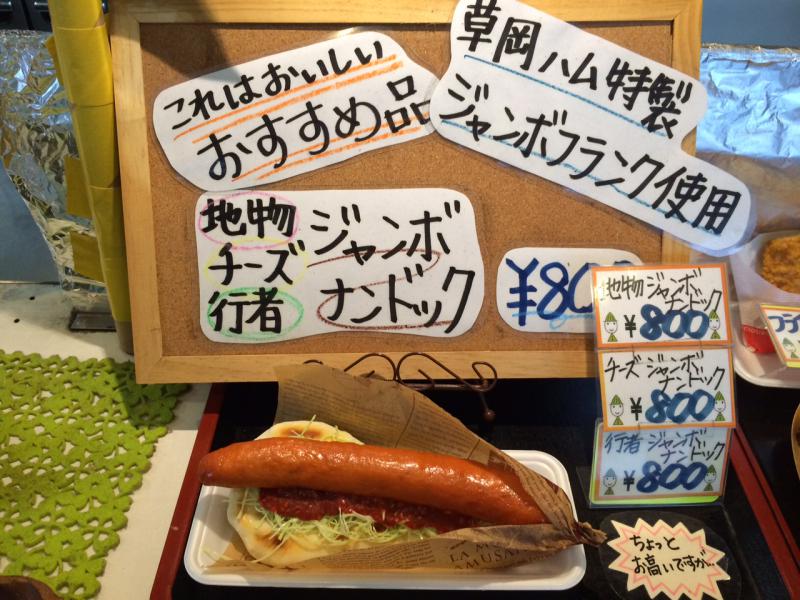 これはおいしい
おすすめ品
草岡ハム特製
ジャンボフランク使用
地物
チーズ
行者
ジャンボ
ナンドック
¥800
地物ジャンボ
ナンドック
¥800
チーズジャンボ
ナンドック
¥800
行者ジャンボ
ナンドック
¥800
ちょっと
お高いですが…